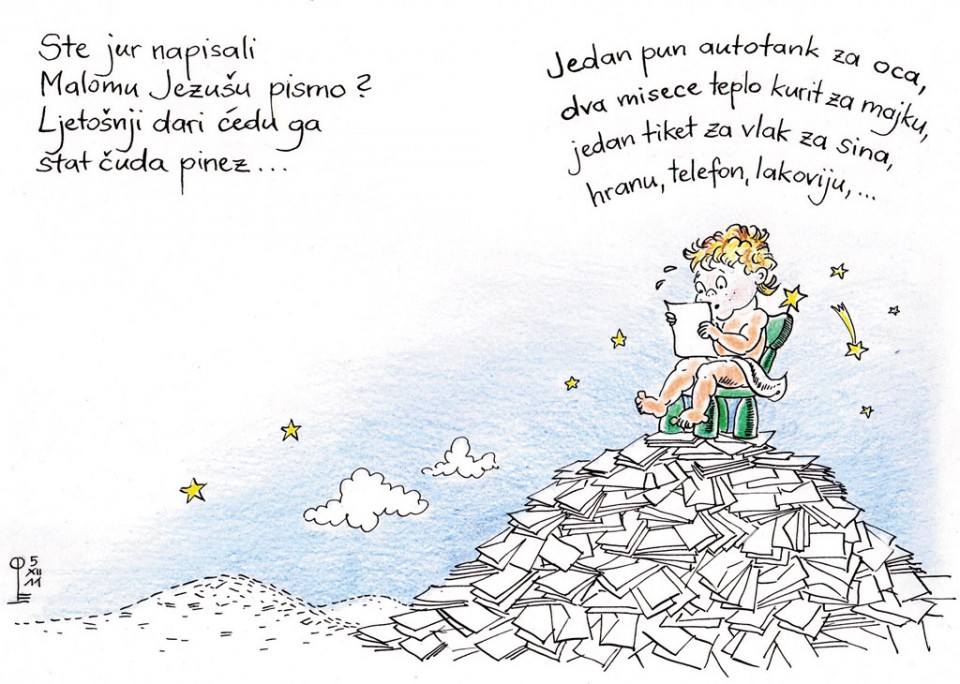 Ste jur napisali
Malomu Jezušu pismo?
Ljetošnji dari ćedu ga
štat čuda pinez...
Jedan pun autotank za oca,
dva misece teplo kurit za majku,
jedan tiket za vlak za sina,
hranu, telefon, lakoviju,...
5
XII
11